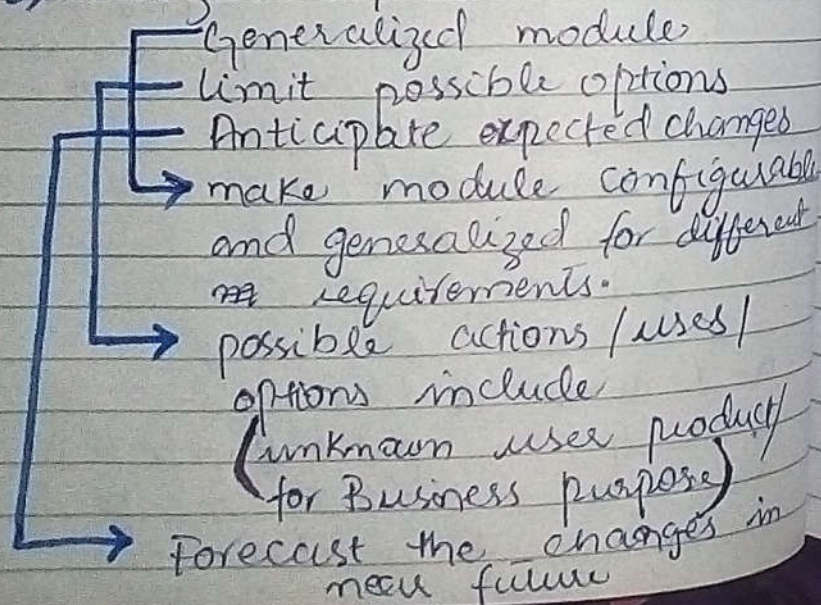 Generalized module
limit possible options
Anticipate expected changes
make module configurable
and generalized for different
requirements.
possible actions / uses /
options include
(unknown user product/
for Business purpose)
Forecast the changes in
near future